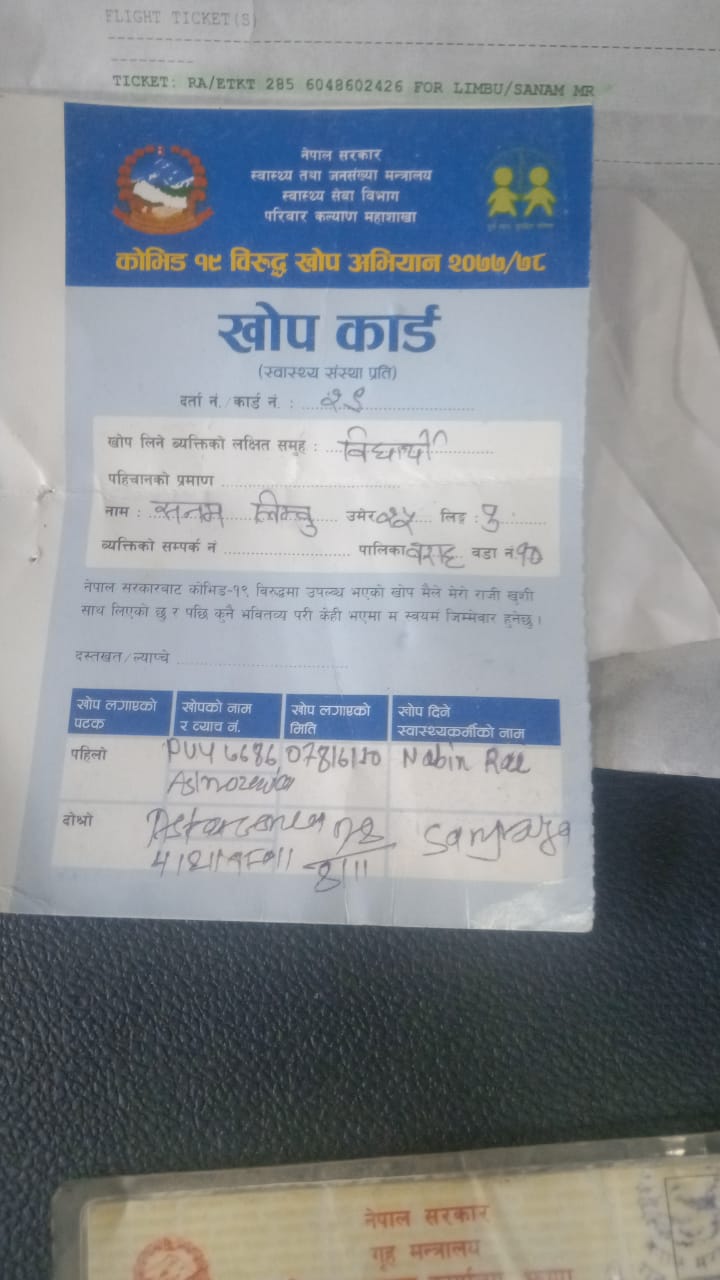 FLIGHT TICKET(S)
TICKET: RA/ETKT 285 6048602426 FOR LIMBU/SANAM MR
नेपाल सरकार
स्वास्थ्य तथा जनसंख्या मन्त्रालय
स्वास्थ्य सेवा विभाग
परिवार कल्याण महाशाखा
कोभिड १९ विरुद्ध खोप अभियान २०७७/७८
खोप कार्ड
(स्वास्थ्य संस्था प्रति)
दर्ता नं./कार्ड नं. : २९
खोप लिने व्यक्तिको लक्षित समुह : विद्यार्थी
पहिचानको प्रमाण
नाम : सनम लिम्बु उमेर २५ लिङ्ग : पु
व्यक्तिको सम्पर्क नं पालिका वराह वडा नं. १०
नेपाल सरकारबाट कोभिड-१९ विरुद्धमा उपलब्ध भएको खोप मैले मेरो राजी खुशी
साथ लिएको छु र पछि कुनै भवितव्य परी केही भएमा म स्वयमं जिम्मेवार हुनेछु ।
दस्तखत/ल्याप्चे
खोप लगाएको पटक
खोपको नाम र व्याच नं.
खोप लगाएको मिति
खोप दिने स्वास्थ्यकर्मीको नाम
पहिलो 078/6/20 Nabin Rai
दोश्रो
नेपाल सरकार
गृह मन्त्रालय